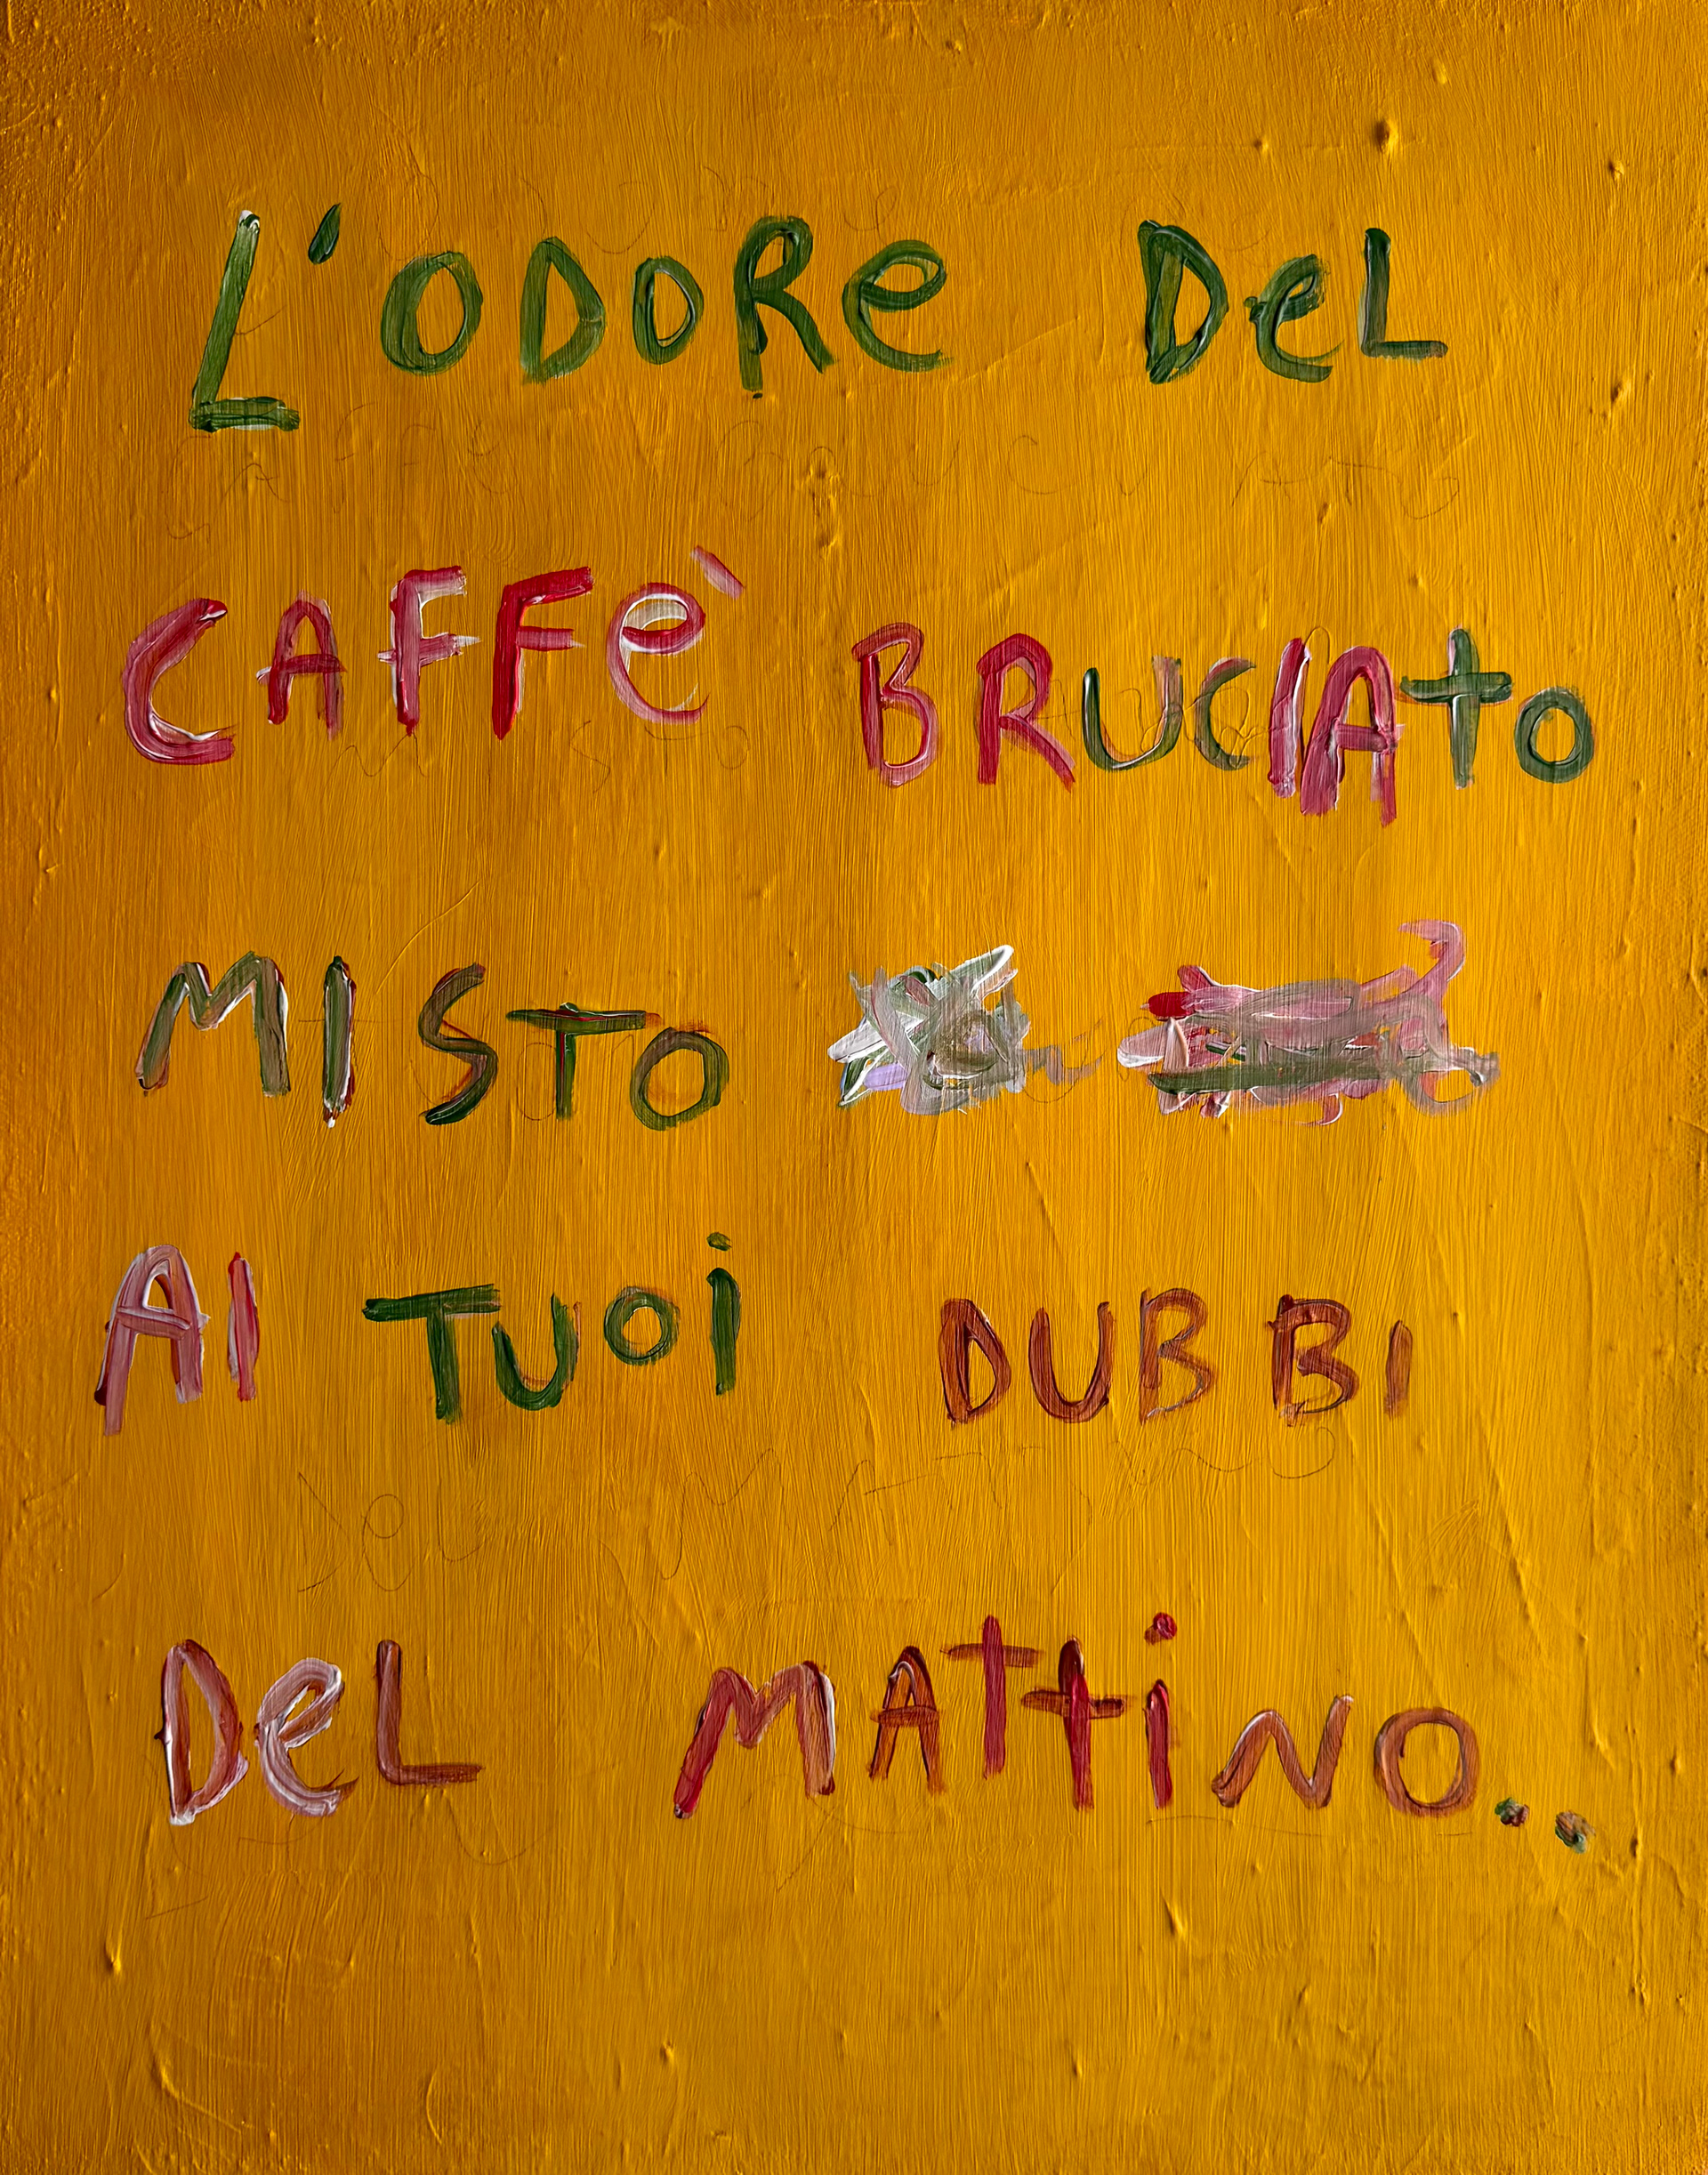 L'ODORe DeL
CAFFe' BRUCIAto
MISTO
AI TUOi DUBBI
DeL MAttiNO..